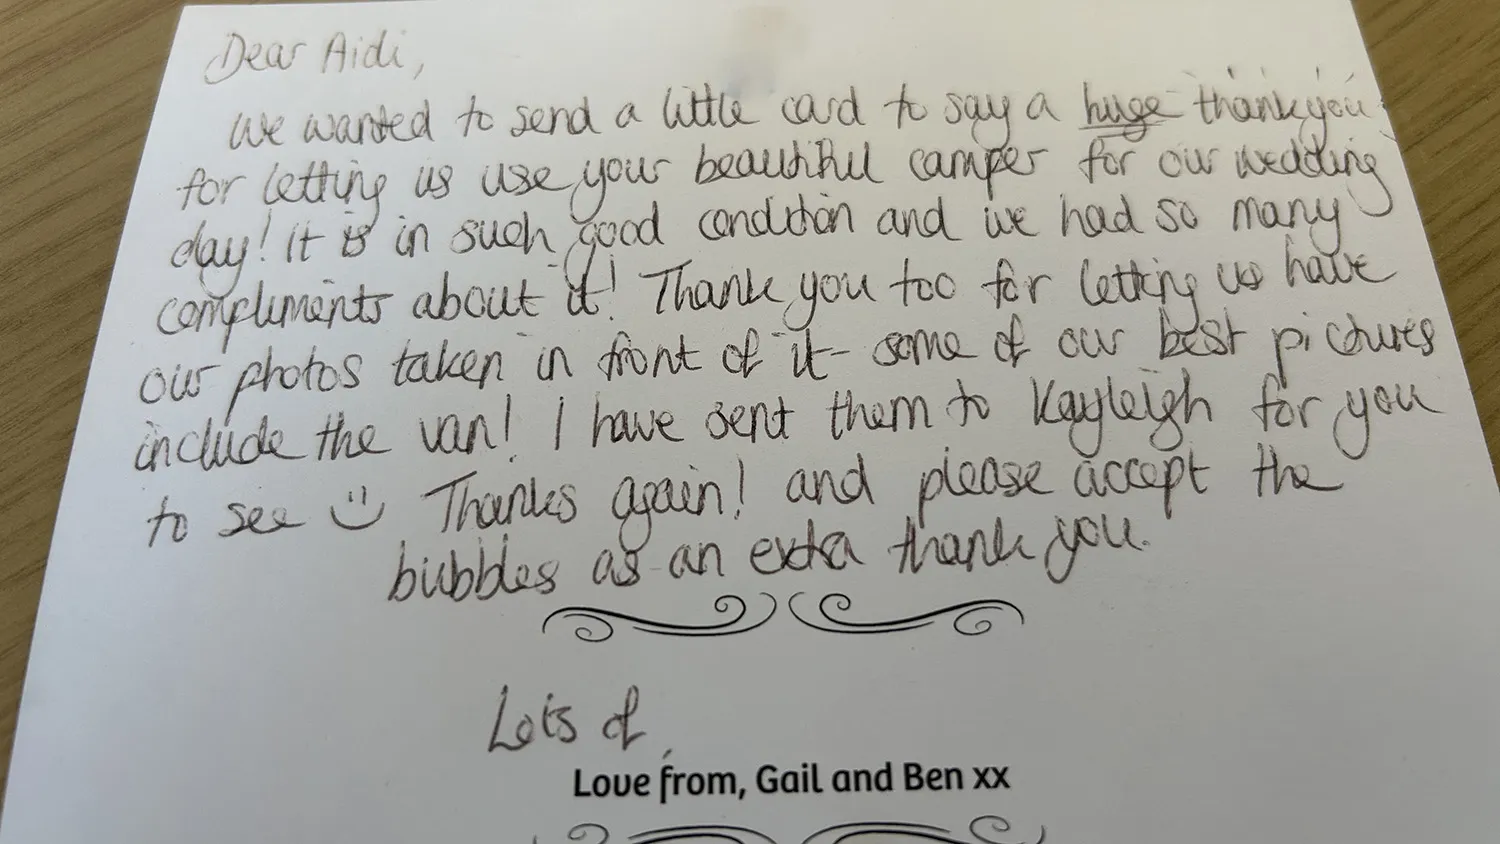 Dear Aidi,
We wanted to send a little card to say a huge thankyou
for letting us use your beautiful camper for our wedding
day! It is in such good condition and we had so many
compliments about it! Thank you too for letting us have
our photos taken in front of it - some of our best pictures
include the van! I have sent them to Kayleigh for you
to see :) Thanks again! and please accept the
bubbles as an extra thank you.
Lots of
Love from, Gail and Ben xx